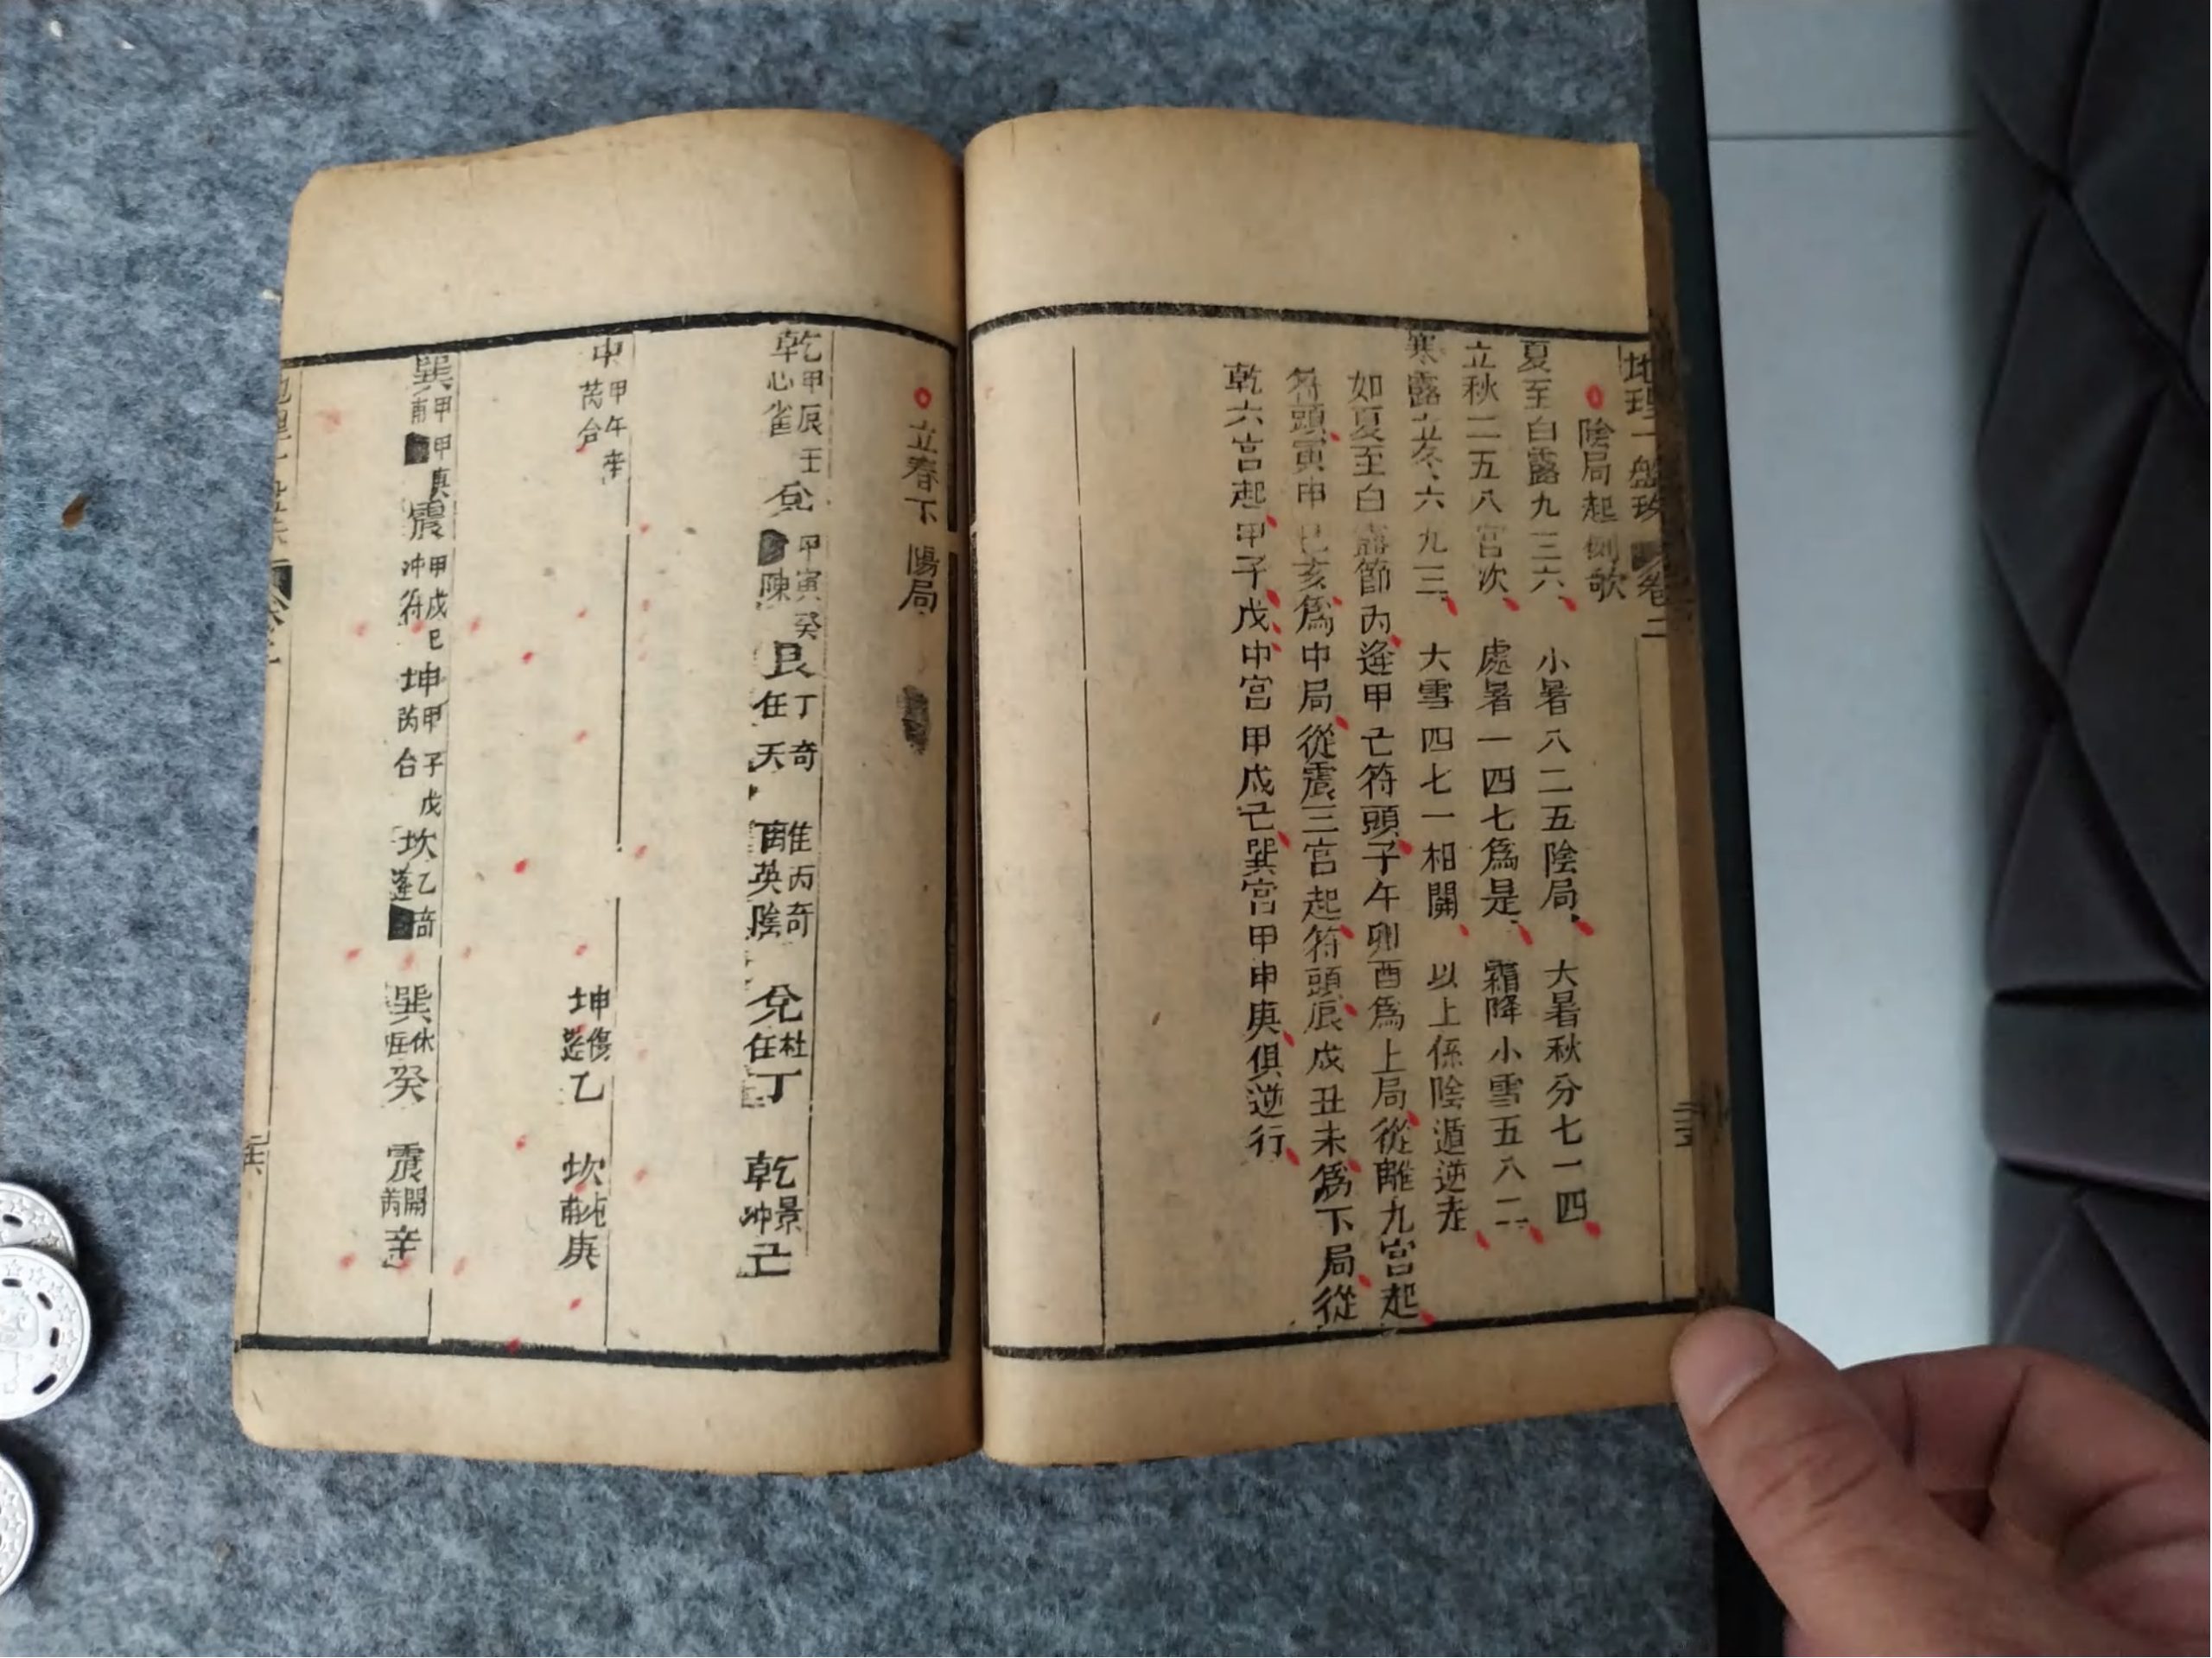 地理一盤珠 卷二
陰局起例歌
夏至白露九三六 小暑八二五陰局 大暑秋分七一四
立秋二五八宮次 處暑一四七爲是 霜降小雪五八二
寒露立冬六九三 大雪四七一相關 以上係陰遁逆走
如夏至白露節丙逢甲己符頭子午卯酉爲上局從離九宮起
符頭寅申巳亥爲中局從震三宮起符頭辰戌丑未爲下局從
乾六宮起甲子戊中宮甲戌己巽宮甲申庚俱逆行
立春下 陽局
乾 甲辰壬 心雀 兌 甲寅癸 陳 艮 丁奇 任天 離 隹丙奇 英陰 兌 杜任 丁 乾 景冲 己
中 甲午辛 芮台 坤 傷蓬 乙 坎 庚
巽 甲申庚 甫 震 甲戌己 冲符 坤 甲子戊 芮台 坎 乙奇 蓬 巽 休 癸 震 開芮 辛